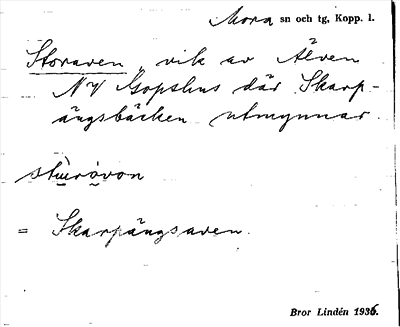 Mora sn och tg, Kopp. l.
Storaven, vik av Älven
NV Gopshus där Skarp-
ängsbäcken utmynnar.
stu̇rȯvon
= Skarpängsaven.
Bror Lindén 1936.